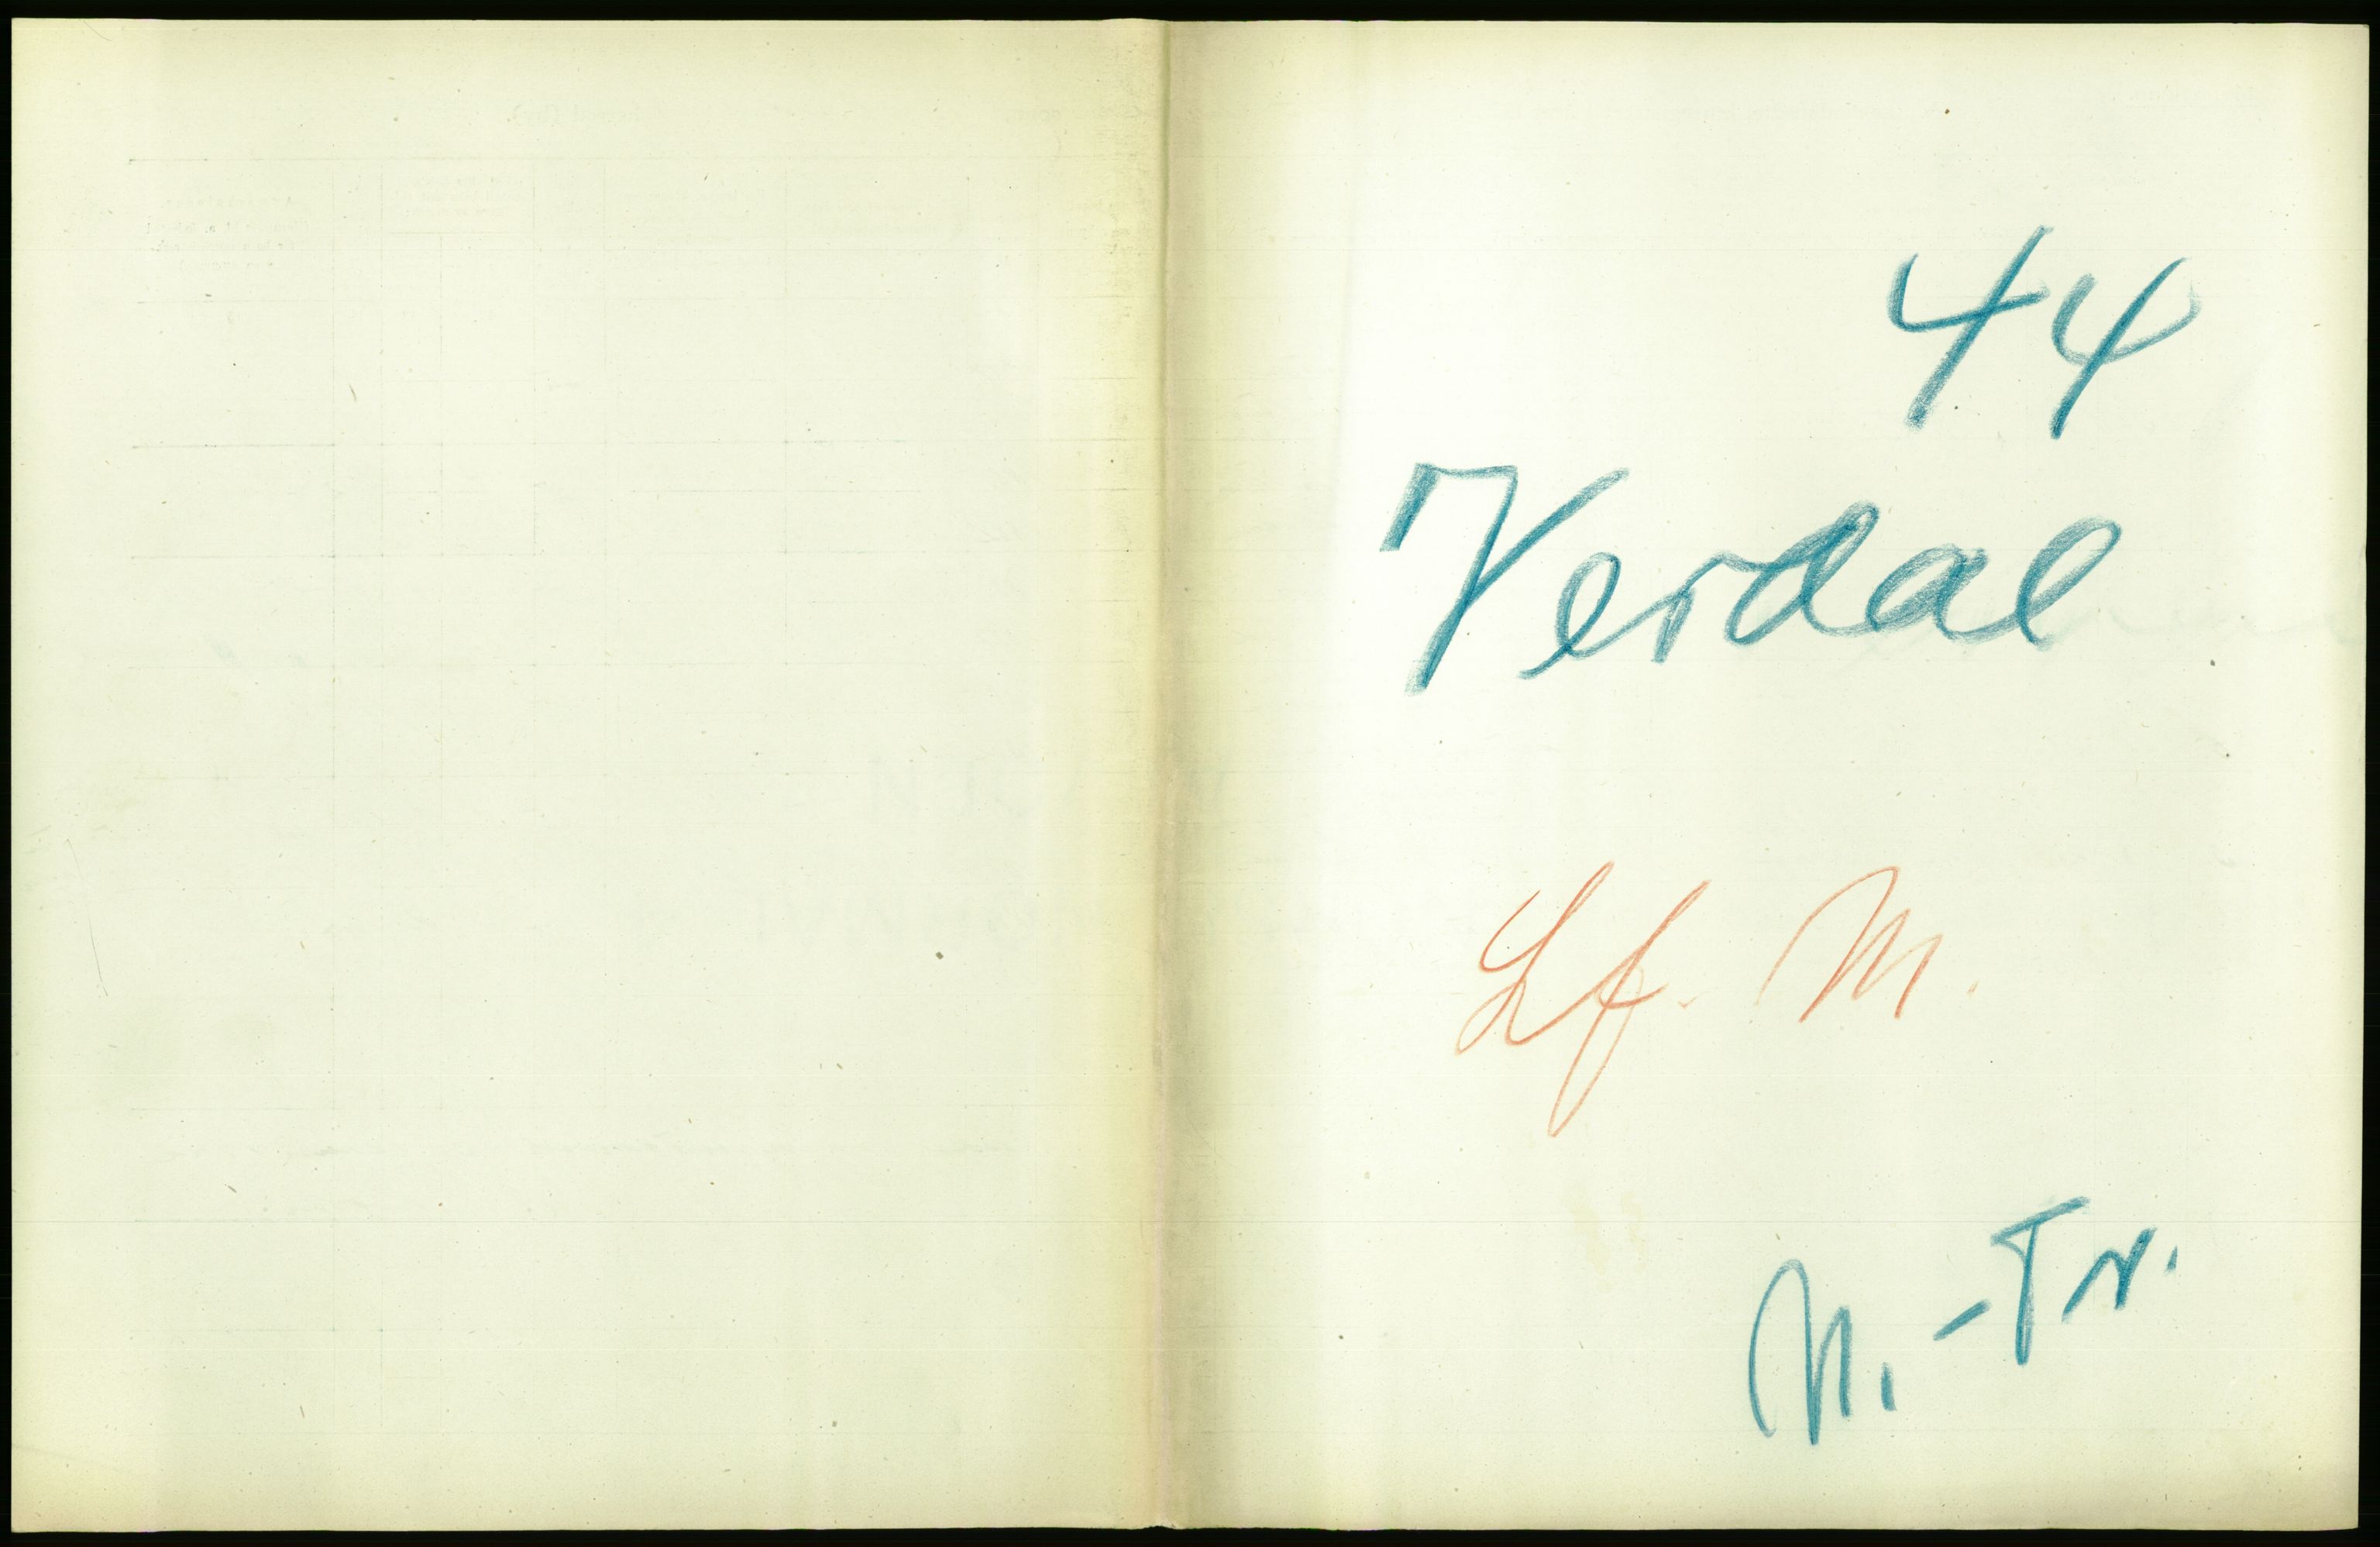 44
Verdal
Lf. M.
N.-Tr.